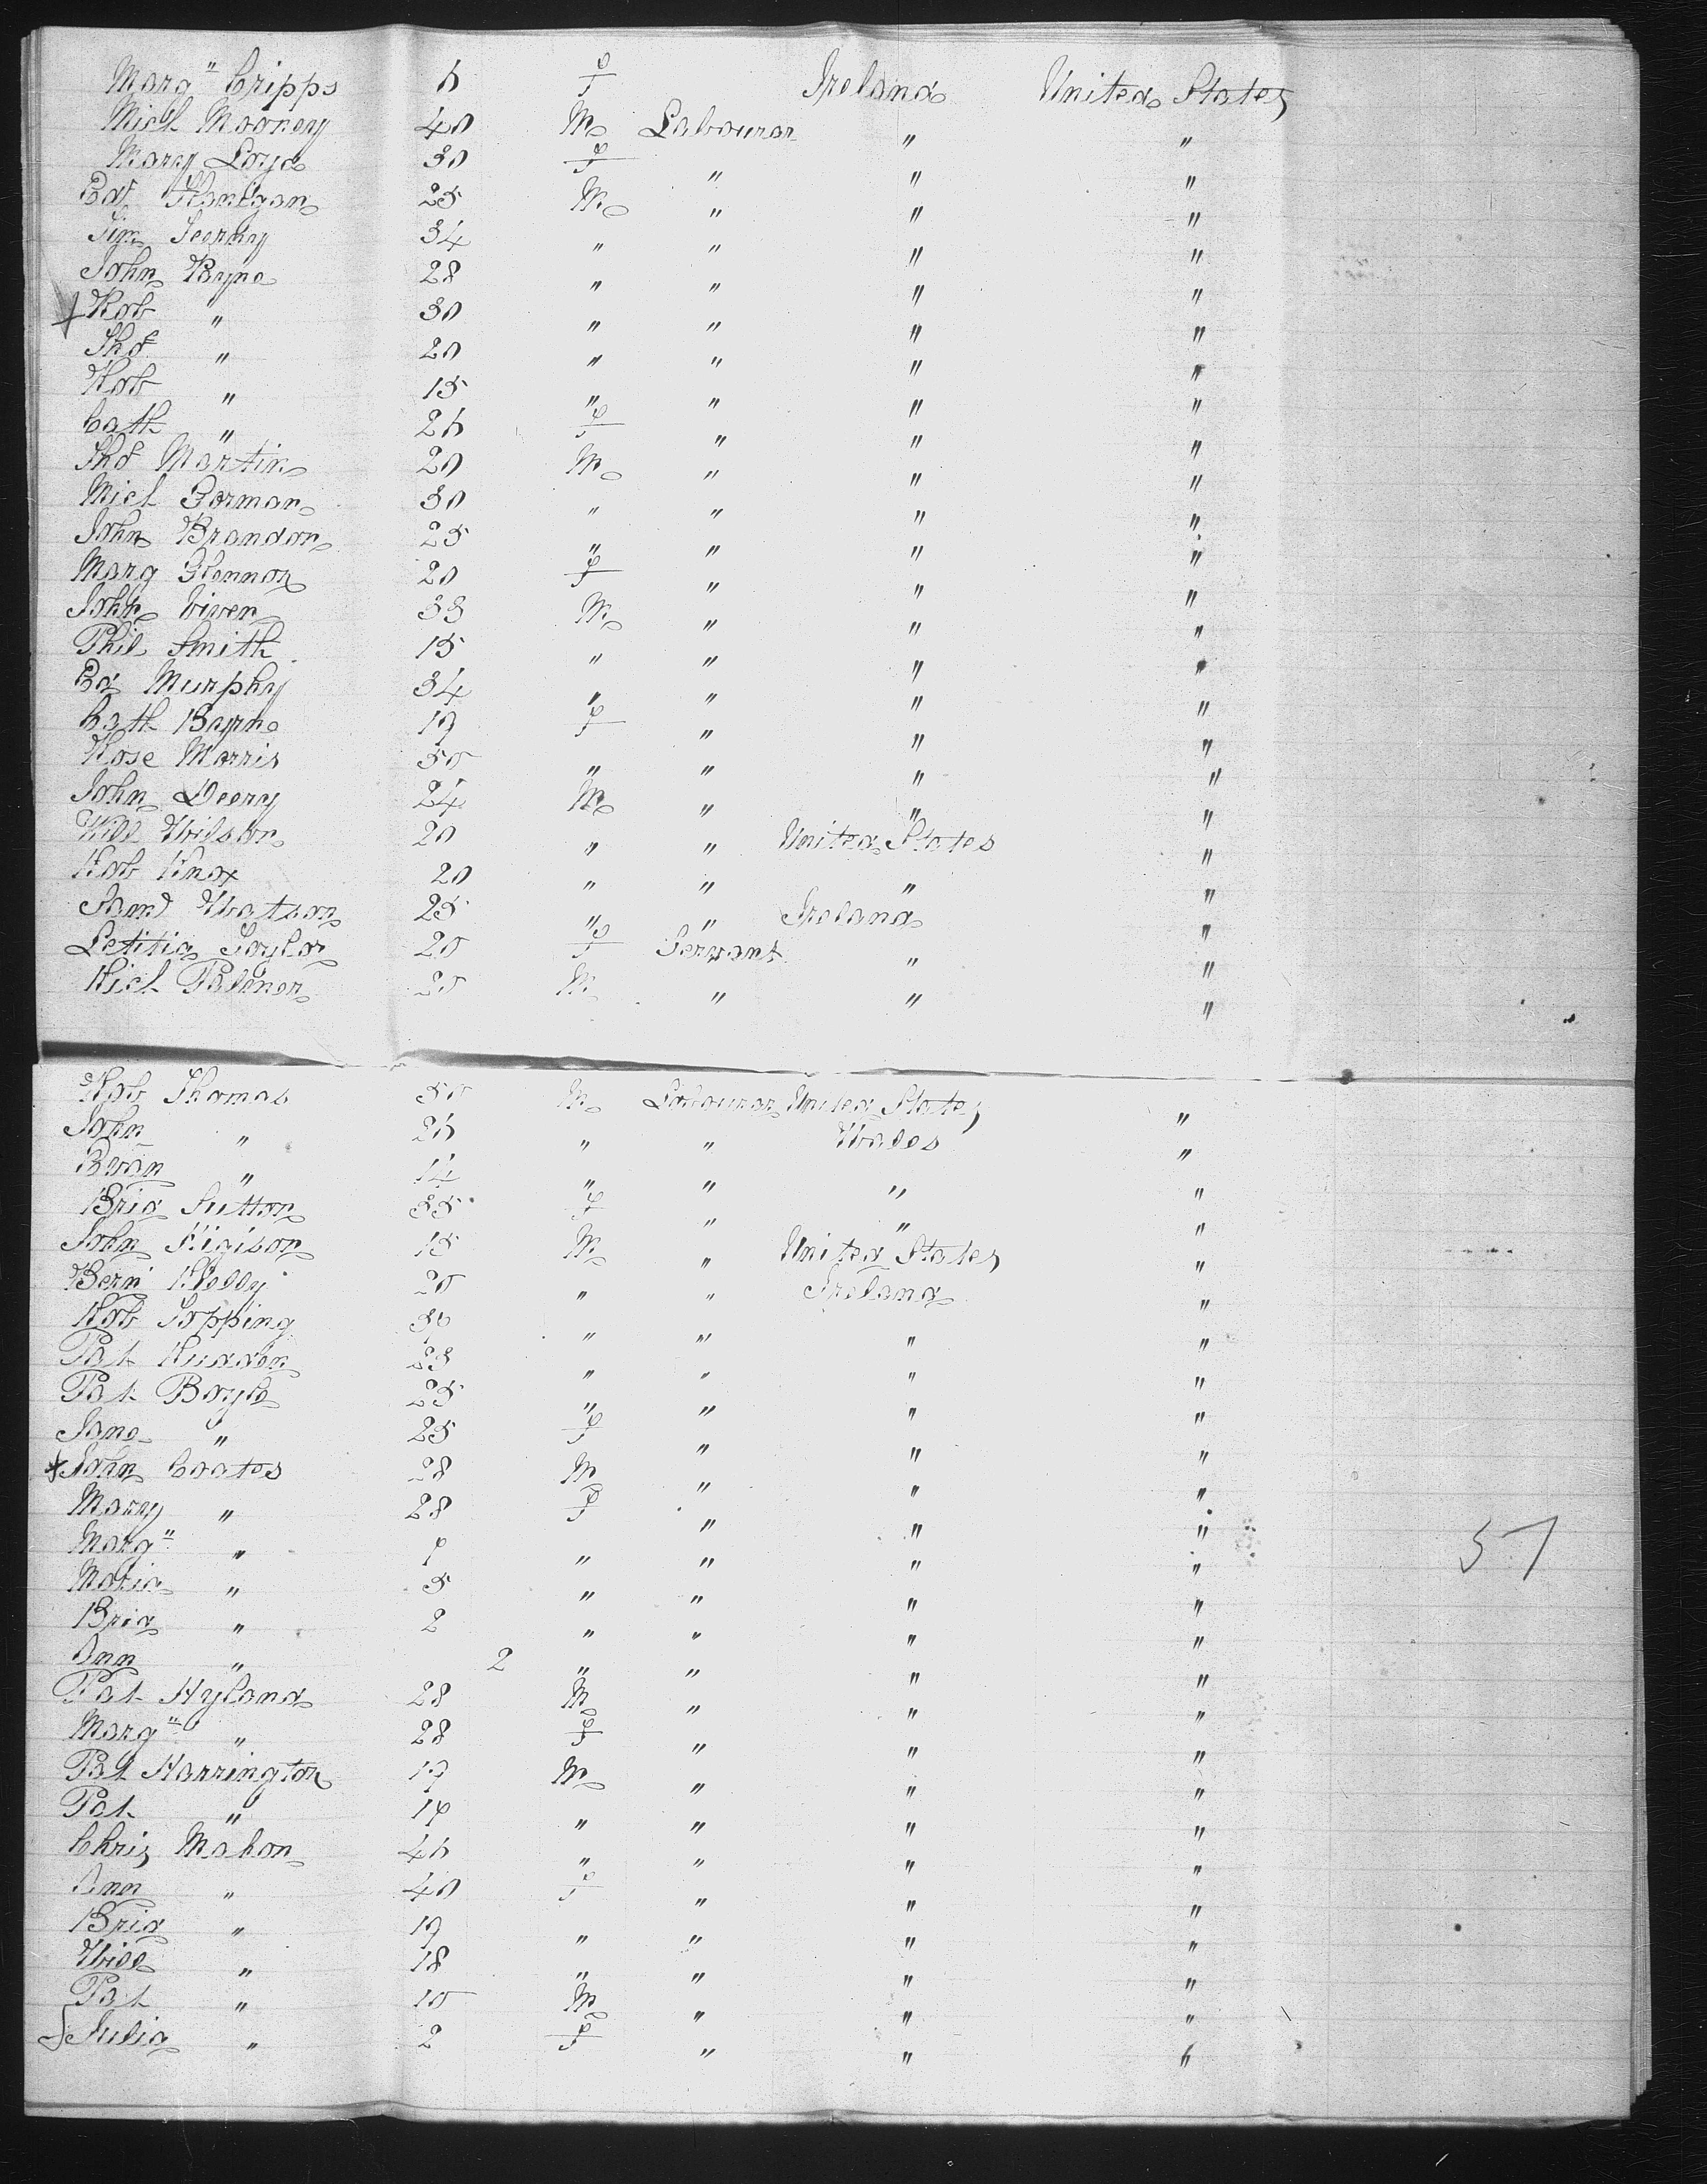 Marg" Cripps 6 f Ireland United States
Mich Mooney 40 M Labourer " "
Mary Loyd 30 f " " "
Ed Flanigan 25 M " " "
Jim Feerhy 34 " " " "
John Byrne 28 " " " "
Rob " 30 " " " "
Tho's " 20 " " " "
Rob " 15 " " " "
Cath " 26 f " " "
Tho's Martin 20 M " " "
Mich Gorman 30 " " " "
John Brandon 25 " " " "
Marg Glennon 20 f " " "
John Civen 33 M " " "
Phil Smith 15 " " " "
Ed Murphy 34 " " " "
Cath Byrne 19 f " " "
Rose Morris 50 " " " "
John Deery 24 M " " "
Will Wilson 20 " " United States "
Rob Knox 20 " " " "
Saml Watson 25 " " Ireland "
Letitia Taylor 20 f Servant " "
Rich Palmer 20 M " " "
Rob Thomas 50 M Labourer United States "
John " 26 " " Wales "
Evan " 14 " " " "
Brid Sutton 35 f " " "
John Higison 15 M " United States "
Bern Kelly 20 " " Ireland "
Rob Topping 39 " " " "
Pat Rudden 23 " " " "
Pat Boyle 25 " " " "
Jane " 25 f " " "
* John Coates 28 M " " "
Mary " 28 f " " "
Marg" " 9 " " " "
Maria " 5 " " " "
Brid " 2 " " " "
Ann " 2 " " " "
Pat Hyland 28 M " " "
Marg" " 28 f " " "
Pat Harrington 19 M " " "
Pat " 19 " " " "
Chris Mahon 46 " " " "
Ann " 40 f " " "
Brid " 19 " " " "
Will " 18 " " " "
Pat " 10 M " " "
Julia " 2 f " " "
57